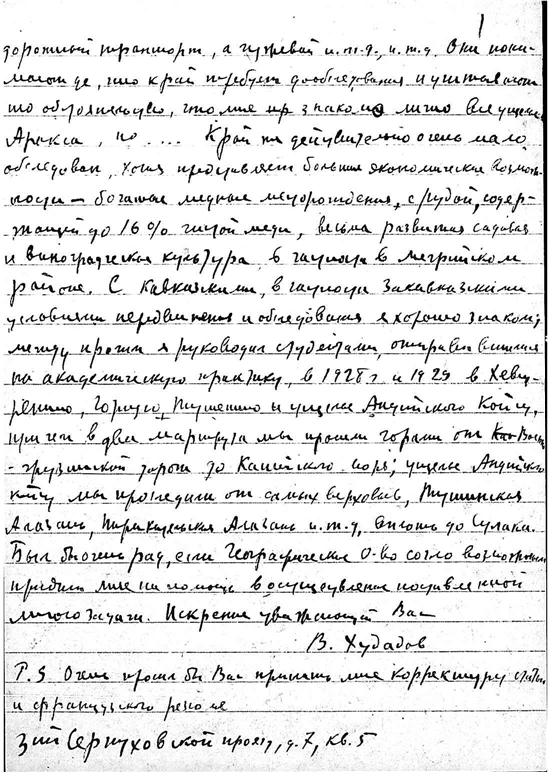 дорожный транспорт, а гужевой и.т.д., и.т.д. Они пони-
мают де, что край требует дообследования и учитывают
то обстоятельство, что мне знакомо лично все ущелье
Аракса, но .... Край же действительно очень мало
обследован, хотя представляет большие экономические возмож-
ности – богатые медные месторождения, с рудой, содер-
жащей до 16% чистой меди, весьма развитая садовая
и виноградческая культура, в частности в мегрийском
районе. С Кавказскими, в частности Закавказскими
условиями передвижения и обследования я хорошо знаком,
между прочим я руководил студентами, отправлявшимися
на академическую практику, в 1928 г и 1929 в Хевсу-
ретию, Горную Тушетию и ущелье Андийского Койсу,
причем в два маршрута мы прошли горами от Воен
-грузинской дороги до Каспийского моря; ущелье Андийско
койсу мы проследили от самых верховьев, Тушинская
Алазань, Пирикительская Алазань и.т.д, вплоть до Сулака.
Был бы очень рад, если Географическое О-во сочло возможным
придти мне на помощь в осуществлении поставленной
мною задачи. Искренне уважающий Вас
В. Худадов
P.S. Очень просил бы Вас прислать мне корректуру статьи
и французского резюме
3ий Серпуховской проезд, д.7, кв.5